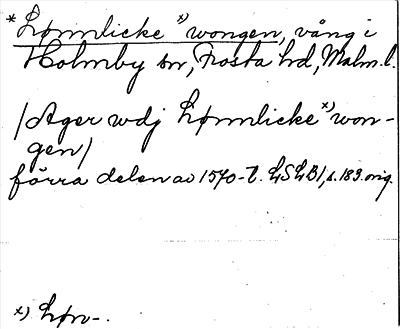 *Liørnnlicke x) wongen, vång i
Holmby sn, Frosta hd, Malm.l.
/Ager wdj Liørnnlicke x) won-
gen/
förra delen av 1570-t. LSLB1, s. 183. orig.
x) Liørn-.